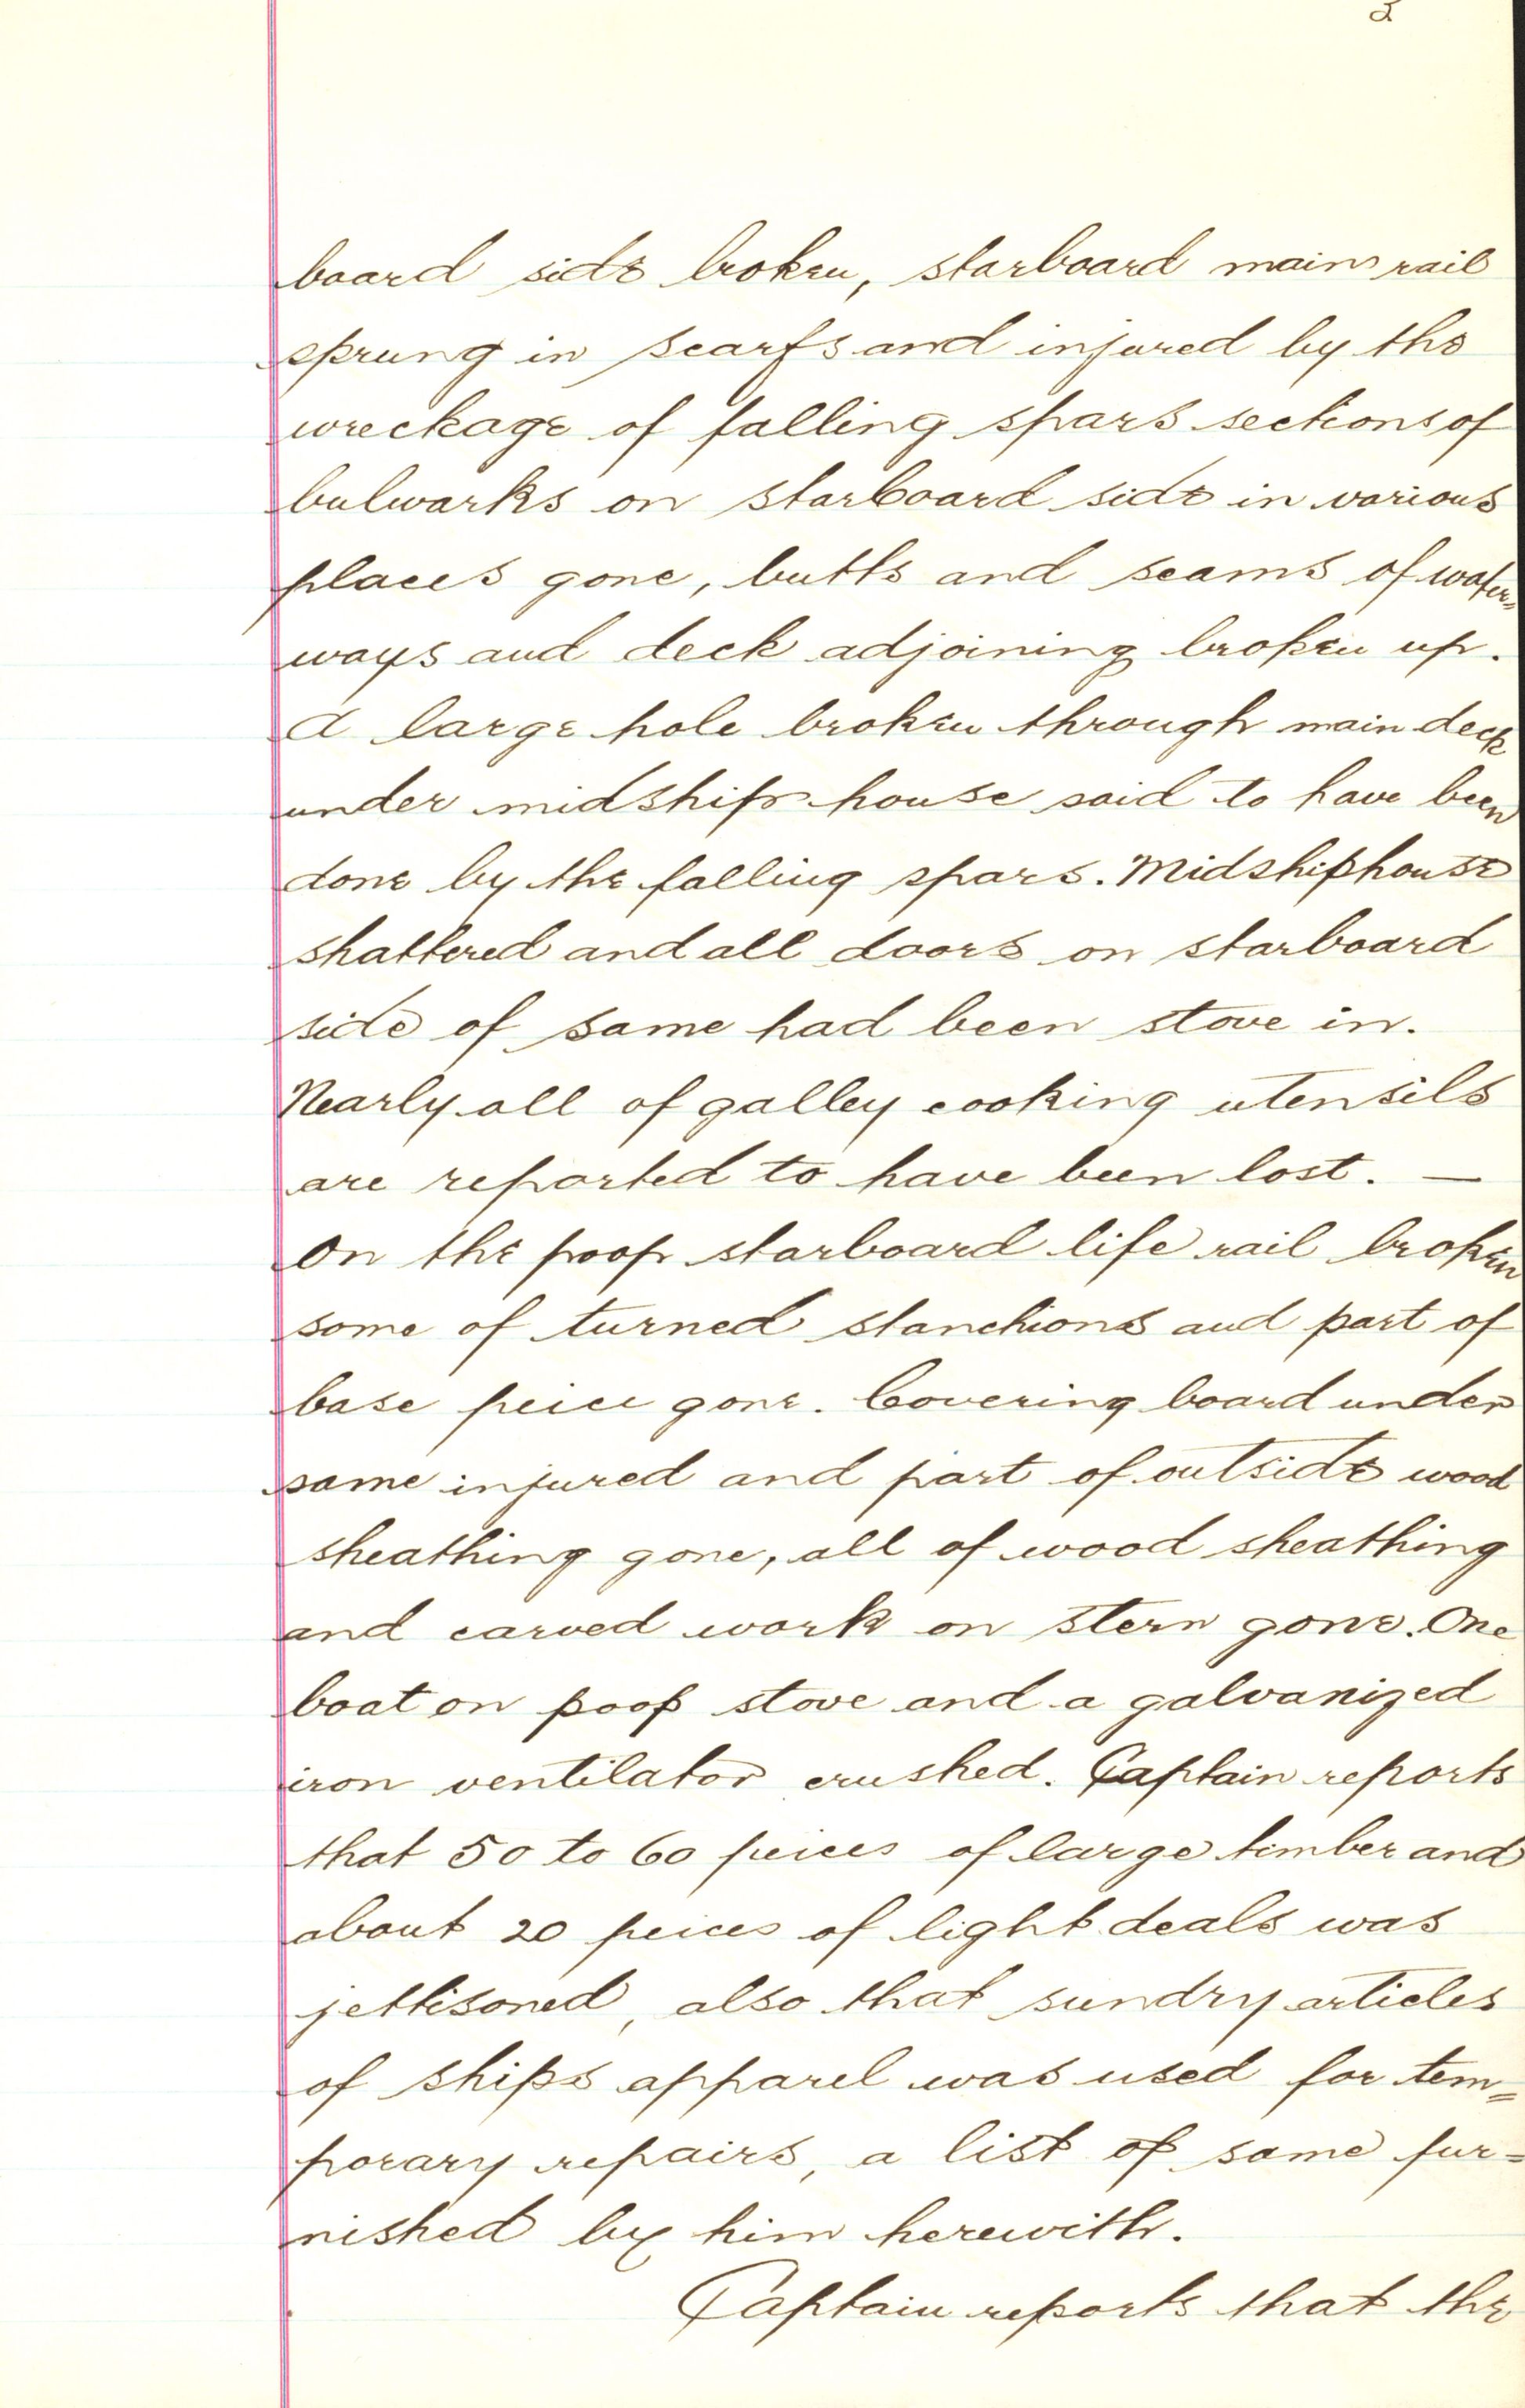 2
board side broken, starboard main rail
sprung in scarfs and injured by the
wreckage of falling spars sections of
bulwarks on starboard side in various
places gone, butts and seams of water=
ways and deck adjoining broken up.
A large hole broken through main deck
under midship house said to have been
done by the falling spars. Midship house
shattered and all doors on starboard
side of same had been stove in.
Nearly all of galley cooking utensils
are reported to have been lost. —
On the poop starboard life rail broken
some of turned stanchions and part of
base peice gone. Covering board under
same injured and part of outside wood
sheathing gone, all of wood sheathing
and carved work on stern gone. One
boat on poop stove and a galvanized
iron ventilator crushed. Captain reports
that 50 to 60 peices of large timber and
about 20 peices of light deals was
jettisoned, also that sundry articles
of ships apparel was used for tem=
porary repairs, a list of same fur=
nished by him herewith.
Captain reports that the